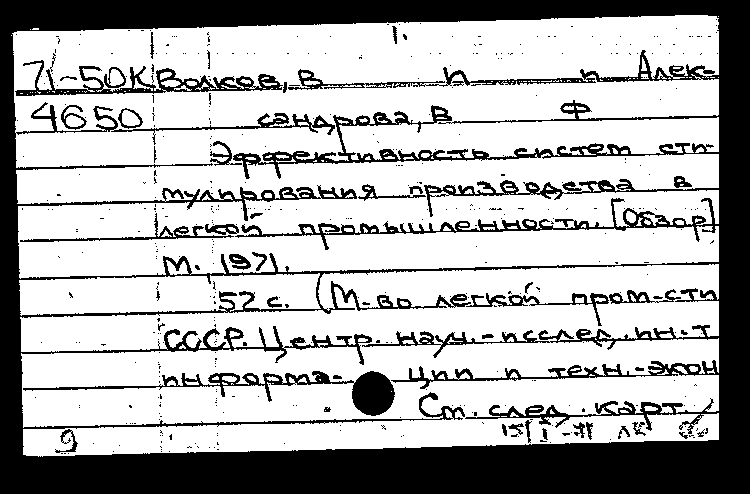 1.
71-50К Волков, В п п Алек-
4650 сандрова, В Ф
Эффективность систем сти-
мулирования производства в
легкой промышленности. [Обзор]
М., 1971.
52 с. (М-во легкой пром-сти
СССР. Центр. науч.-исслед. ин-т
информа- ции и техн.-экон
См. след. карт.
9